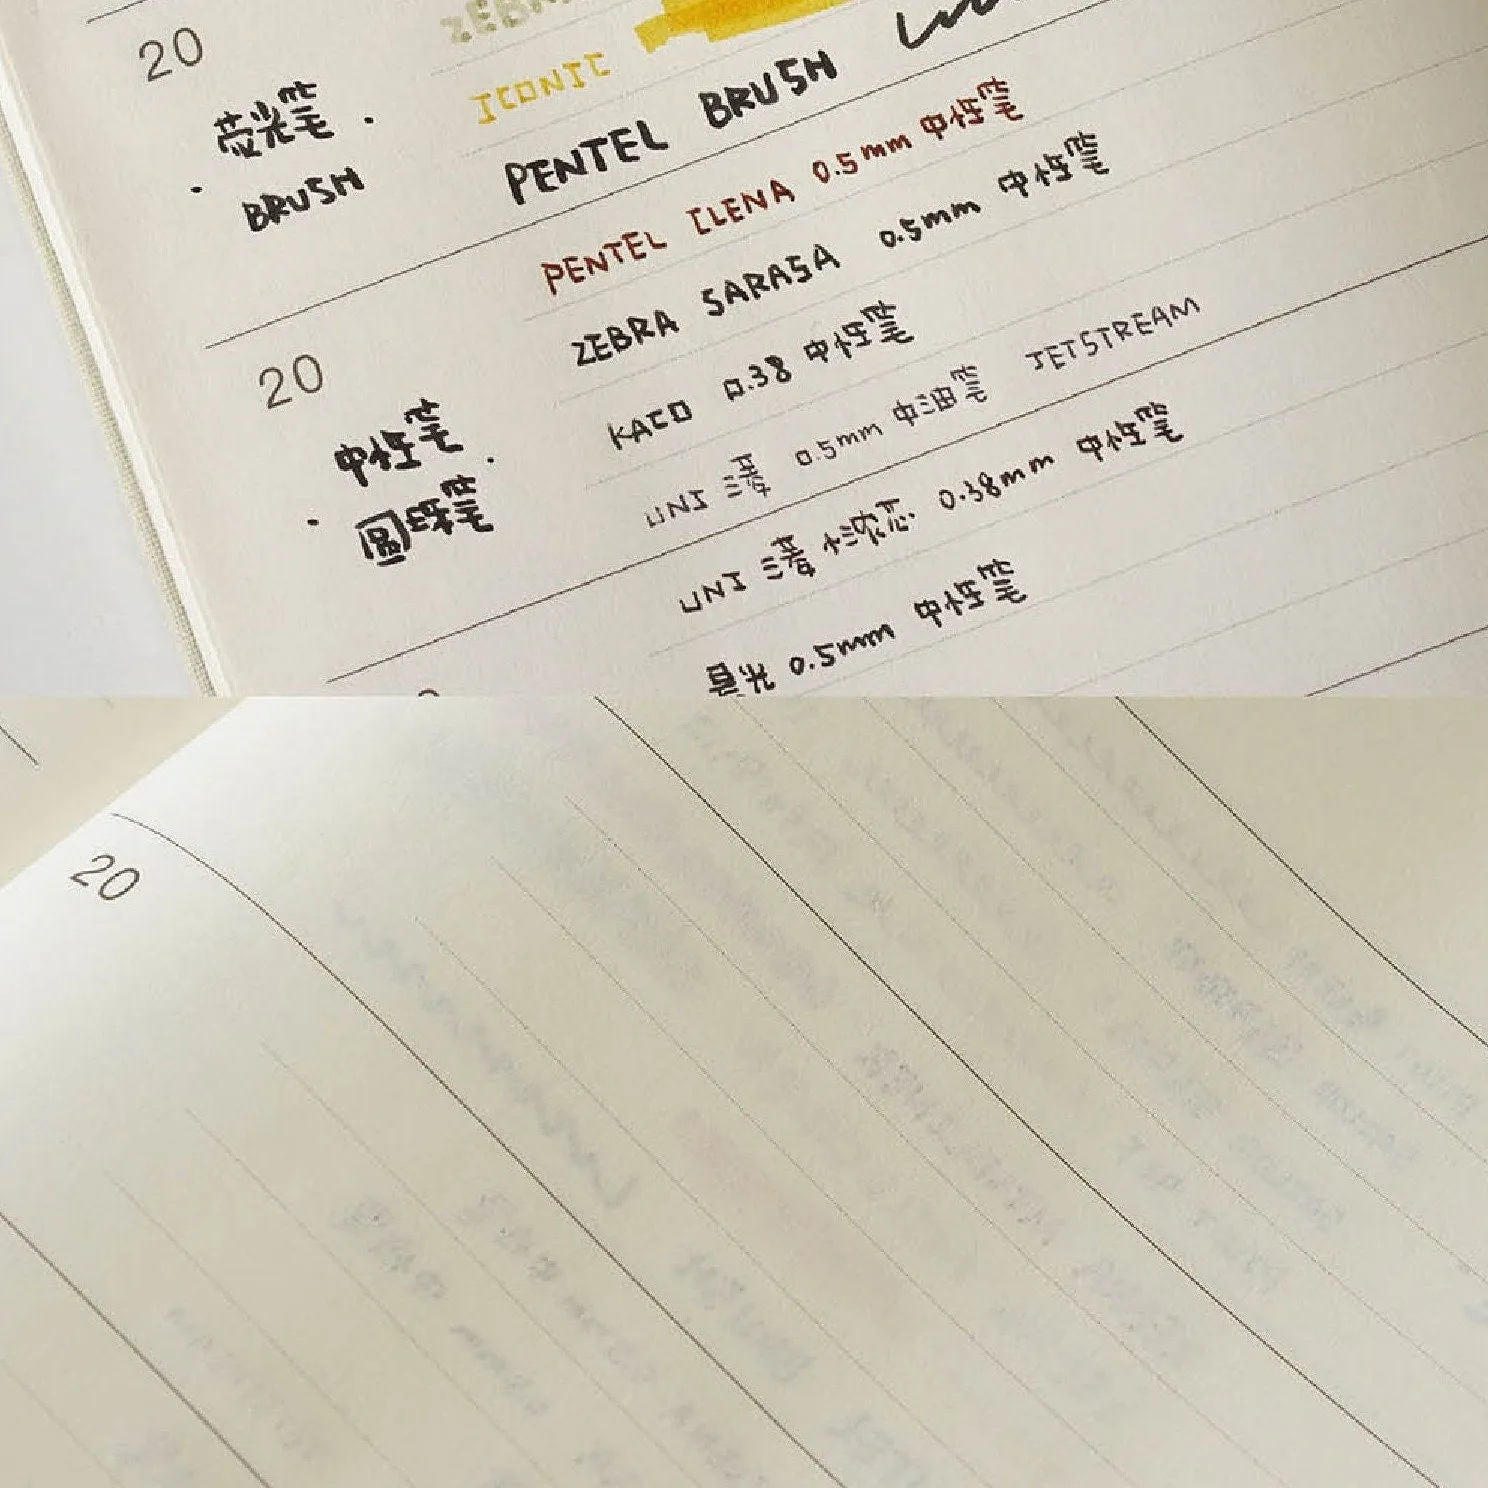 20
荧光笔.
· BRUSH
ZEBRA
ICONIC
PENTEL BRUSH
PENTEL ILENA 0.5mm 中性笔
ZEBRA SARASA 0.5mm 中性笔
20
中性笔.
· 圆珠笔
KACO 0.38 中性笔
UNI 三菱 0.5mm 中油笔 JETSTREAM
UNI 三菱 浓芯 0.38mm 中性笔
晨光 0.5mm 中性笔
20